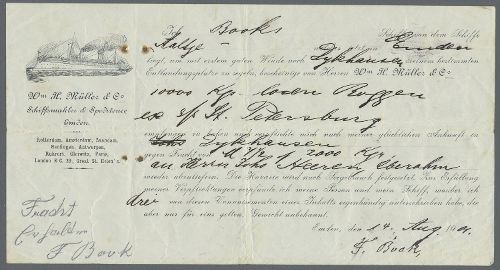 Ich Books
Schiffer von dem Schiffe
Aaltje jetzt in Emden
liegt, um mit erstem guten Winde nach Dykhausen seinem bestimmten
Entlandungsplatze zu segeln, bescheinige von Herren Wm H. Müller & Co
10000 Kg. losen Roggen
ex s/s St. Petersburg
empfangen zu haben und verpflichte mich nach meiner glücklichen Ankunft in
Dykhausen
gegen Fracht von 2000 Kg
an Herrn Joh.
wieder abzuliefern. Die Havarie wird nach Seegebrauch festgesetzt. Zur Erfüllung
meiner Verpflichtungen verpfände ich meine Person und mein Schiff, worüber ich
drei von diesen Connossementen eines Inhalts eigenhändig unterschrieben habe, die
aber nur für eins gelten. Gewicht unbekannt.
Emden, den 14 Aug. 1901
F. Book,
Wm H. Müller & Co
Schiffsmakler & Spediteure
Emden.
Rotterdam, Amsterdam,
Harlingen, Antwerpen,
Ruhrort, Paris,
London E.C. 23, Great St. Helen's.
Fracht
Erhalten
F Book